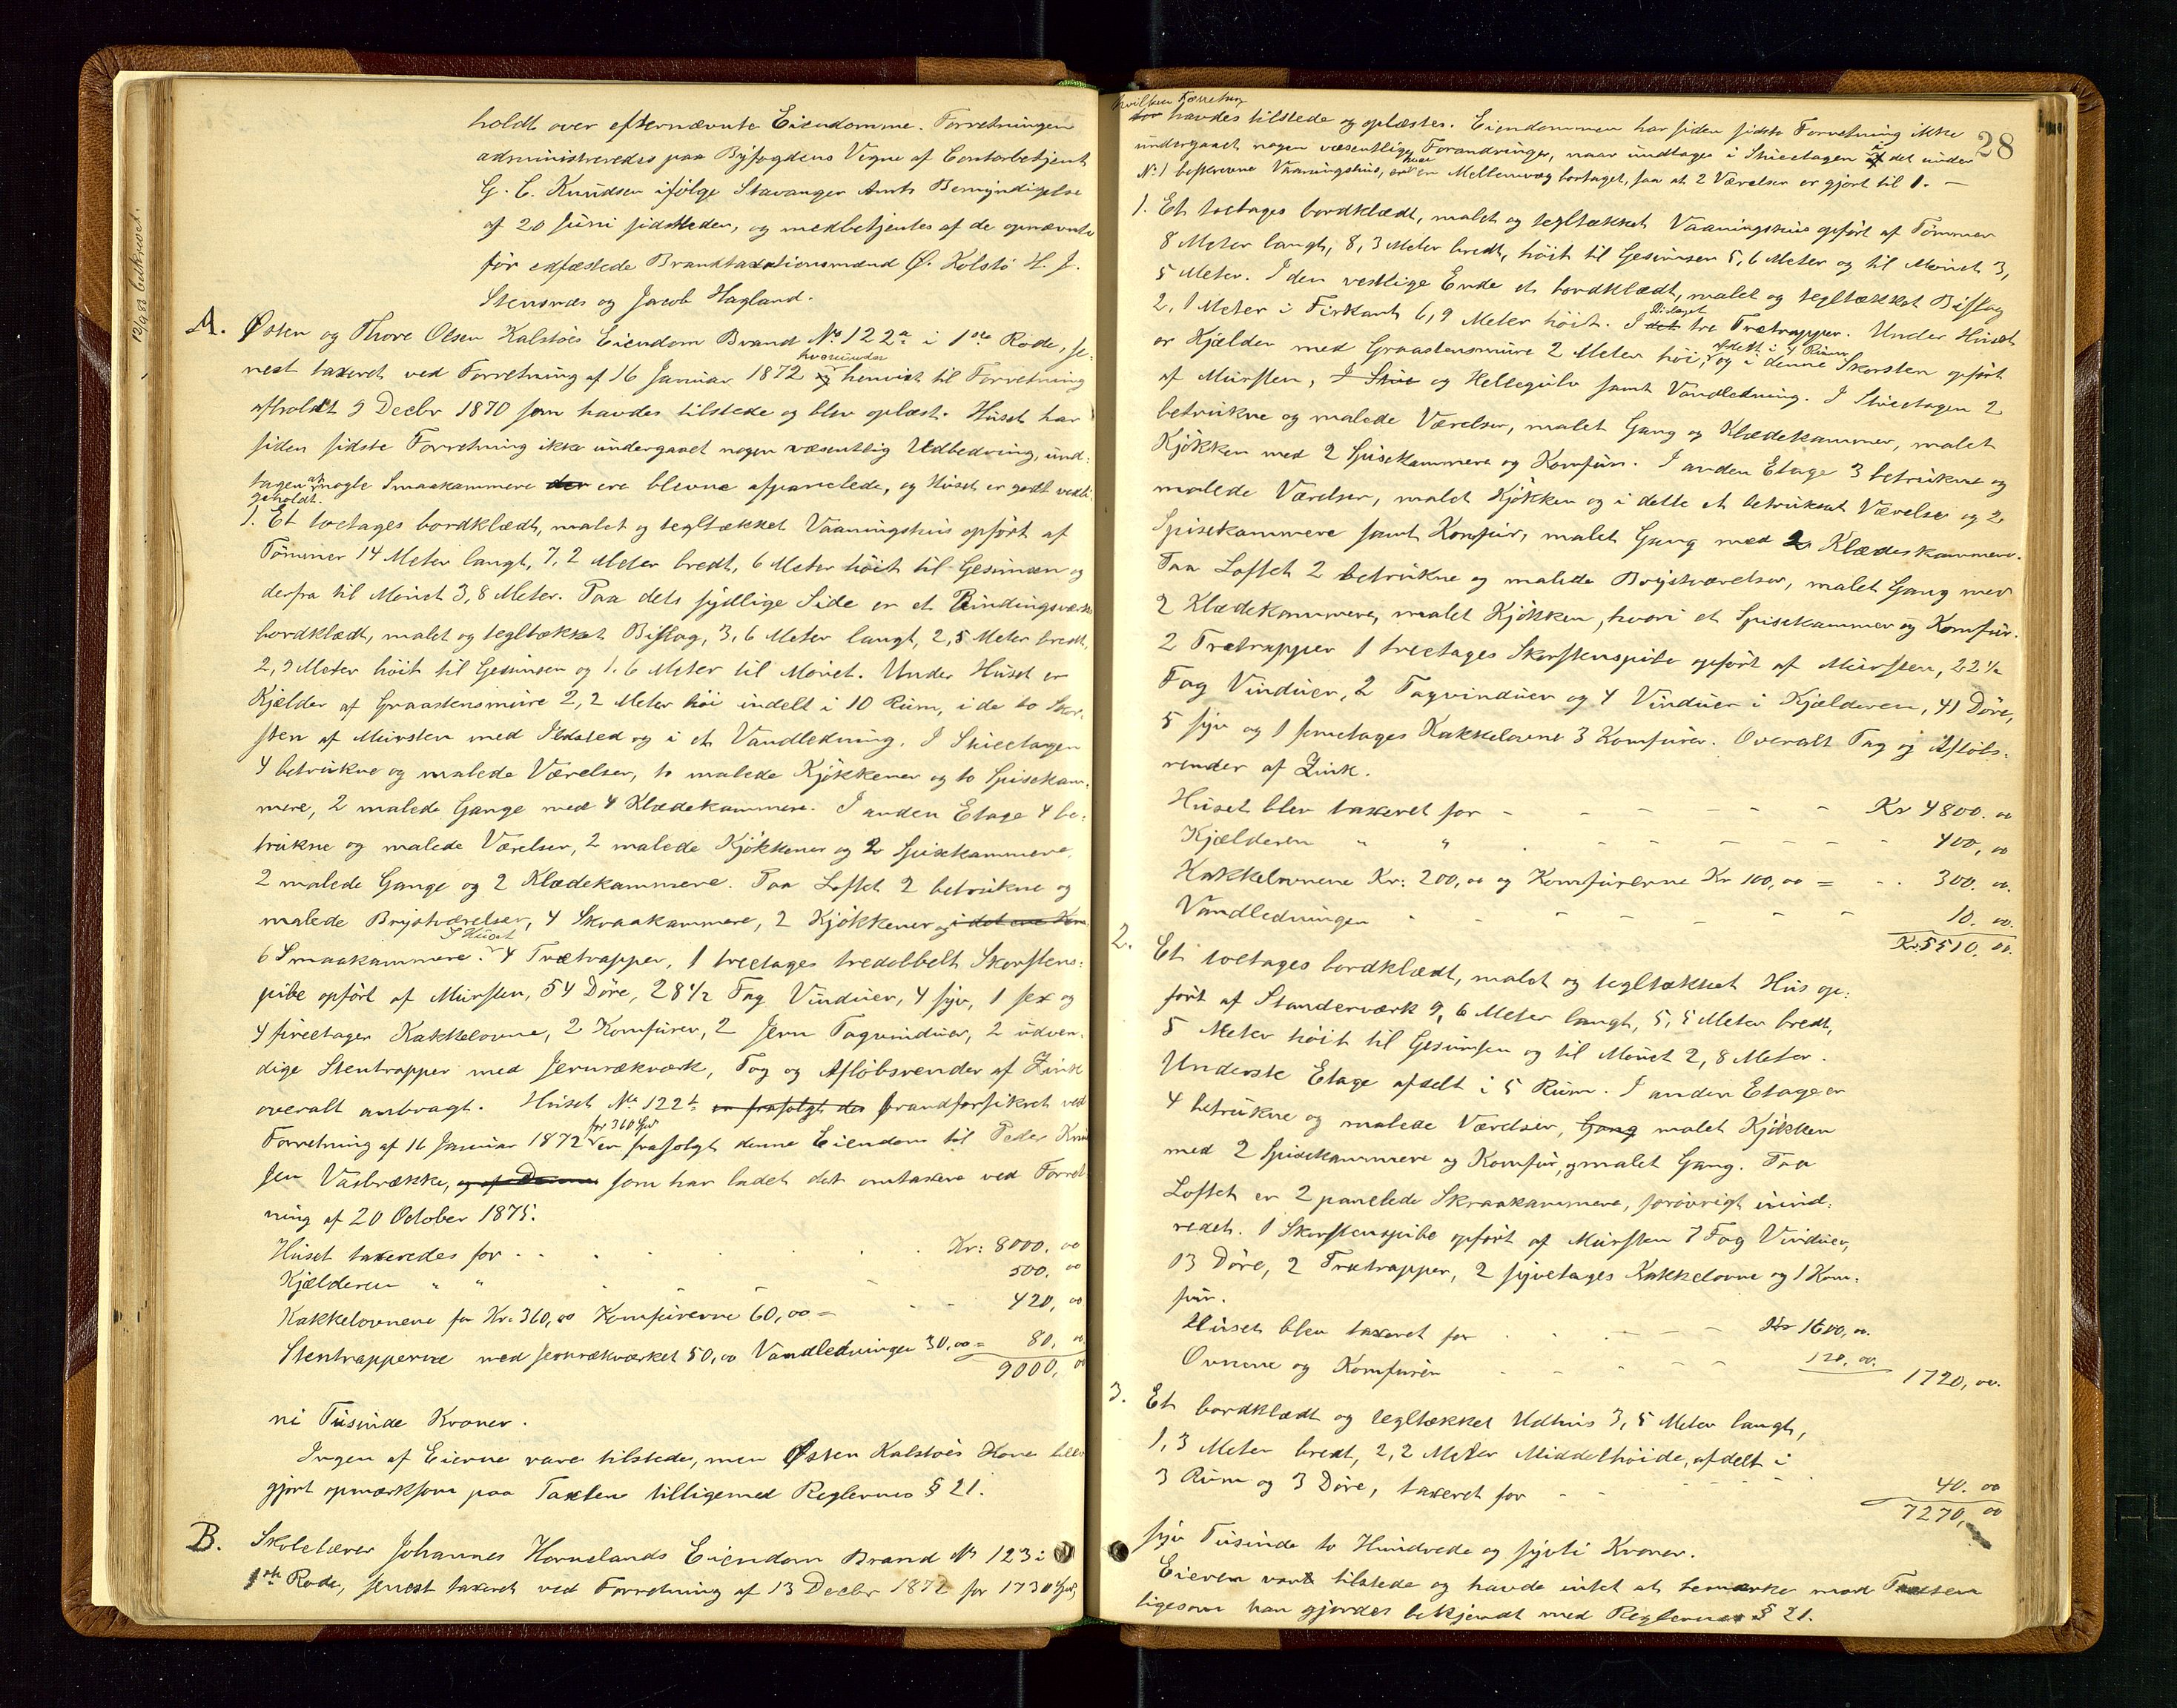 holdt over efternævnte Eiendomme. Forretningen
administreredes paa Byfogdens Vegne af Contorbetjent
G. C. Knudsen ifølge Stavanger Amts Bemyndigelse
af 20 Juni sidstleden, og medbetjentes af de opnævnte
før edfæstede Branktaxationsmænd Ø. Kolstö H. J.
Stensnæs og Jacob Hagland.
A. Østen og Thore Olsen Kalstöes Eiendom Brand No 122a i 1ste Rode, se-
nest taxeret ved Forretning af 16 Januar 1872 hvorunder henvist til Forretning
afholdt 9 Decbr 1870 som havdes tilstede og blev oplæst. Huset har
siden sidste Forretning ikke undergaaet nogen væsentlig Udbedring, und-
tagen at nogle Smaakammere der ere blevne afpanelede, og Huset er godt vedli-
geholdt.
1. Et toetages bordklædt, malet og tegltækket Vaaningshus opført af
Tömmer 14 Meter langt, 7,2 Meter bredt, 6 Meter höit til Gesimsen og
derfra til Mönet 3,8 Meter. Paa dets sydlige Side er et Bindingsværks
bordklædt, malet og tegltækket Bislag, 3,6 Meter langt, 2,5 Meter bredt,
2,9 Meter höit til Gesimsen og 1.6 Meter til Mönet. Under Huset er
Kjælder af Graastensmure 2,2 Meter höi indelt i 10 Rum, i de to Skor-
sten af Mursten med Ildsted og i et Vandledning. I Stueetagen
4 betrukne og malede Værelser, to malede Kjökkener og to Spisekam-
mere, 2 malede Gange med 4 Klædekammere. I anden Etage 4 be-
trukne og malede Værelser, 2 malede Kjökkener og 2 Spisekammere,
2 malede Gange og 2 Klædekammere. Paa Loftet 2 betrukne og
malede Brystværelser, 4 Skraakammere, 2 Kjökkener og i det ene Kom
6 Smaakammere. I Huset 4 Trætrapper, 1 treetages tredobbelt Skorstens-
pibe opført af Mursten, 54 Döre, 28 1/2 Fag Vinduer, 4 syv, 1 sex og
4 fireetages Kakkelovne, 2 Komfurer, 2 Jern Tagvinduer, 2 udven-
dige Stentrapper med Jernrækværk, Tag og Aflöbsrender af Zink
overalt anbragt. Huset No 122b er frasolgt des brandforsikret ved
Forretning af 16 Januar 1872 for 360 Spd er frasolgt denne Eiendom til Peder Knud
sen Vasbrække, og af Denne som har ladet det omtaxere ved Forret
ning af 20 October 1875.
Huset taxeredes for - - Kr: 8000. 00
Kjælderen " " 500. 00
Kakkelovnene for Kr. 360,00 Komfurerne 60,00 = 420, 00
Stentrapperne med Jernrækværket 50,00 Vandledninger 30,00 = 80, 00
9000, 00
ni Tusinde Kroner.
Ingen af Eierne vare tilstede, men Østen Kalstöes Kone blev
gjort opmærksom paa Taxten tilligemed Reglernes § 21.
B. Skolelærer Johannes Hovnelands Eiendom Brand No 123 i
1ste Rode, senest taxeret ved Forretning af 13 Decbr 1872 for 1730 Spd,
12/9 83 bekræftet.
28
hvilken Forretning
for havdes tilstede og oplæstes. Eiendommen har siden sidste Forretning ikke
undergaaet nogen væsentlige Forandringer, naar undtages i Stueetagen i det under
No 1 beskrevne Vaaningshus, hvor en Mellemvæg borttaget, saa at 2 Værelser er gjort til 1. -
1. Et toetages bordklædt, malet og tegltækket Vaaningshus opført af Tömmer
8 Meter langt, 8,3 Meter bredt, höit til Gesimsen 5,6 Meter og til Mönet 3,
5 Meter. I den vestlige Ende et bordklædt, malet og tegltækket Bislag
2,1 Meter i Firkant 6,9 Meter höit. I det Bislaget tre Trætrapper. Under Huset
er Kjælder med Graastensmure 2 Meter höi, afdelt i 4 Rum og i denne Skorsten opført
af Mursten, I Stue og Hellegulv samt Vandledning. I Stueetagen 2
betrukne og malede Værelser, malet Gang og Klædekammer, malet
Kjökken med 2 Spisekammere og Komfur. I anden Etage 3 betrukne og
malede Værelser, malet Kjökken og i dette et betrukket Værelse og 2
Spisekammere samt Komfur, malet Gang med 2 Klædeskammere.
Paa Loftet 2 betrukne og malede Brystværelser, malet Gang med
2 Klædekammere, malet Kjökken, hvori et Spisekammer og Komfur.
2 Trætrapper 1 treetages Skorstenspibe opført af Mursten, 22 1/2
Fag Vinduer, 2 Tagvinduer og 4 Vinduer i Kjælderen, 41 Döre,
5 syv og 1 femetages Kakkelovne 3 Komfurer. Overalt Tag og Aflöbs-
render af Zink.
Huset blev taxeret for - - - - - Kr 4800. 00
Kjælderen " " - - - - - 400, 00
Kakkelovnene Kr: 200,00 og Komfurerne Kr 100,00 = - - 300. 00.
Vandledningen - - - - - 10. 00.
Kr. 5510, 00.
2. Et toetages bordklædt, malet og tegltækket Hus op-
ført af Standerværk 9,6 Meter langt, 5,5 Meter bredt,
5 Meter höit til Gesimsen og til Mönet 2,8 Meter.
Underste Etage afdelt i 5 Rum. I anden Etage er
4 betrukne og malede Værelser, Gang malet Kjökken
med 2 Spisekammere og Komfur, og malet Gang. Paa
Loftet er 2 panelede Skraakammere, forövrigt uind-
redet. 1 Skorstenspibe opført af Mursten 7 Fag Vinduer,
13 Döre, 2 Trætrapper, 2 syvetages Kakkelovne og 1 Kom-
fur.
Huset blev taxeret for - - - - Kr 1600, 00.
Ovnene og Komfuren - - - - 120. 00. 1720, 00.
3. Et bordklædt og tegltækket Udhus 3,5 Meter langt,
1,3 Meter bredt, 2,2 Meter Middelhöide, afdelt i
3 Rum og 3 Döre, taxeret for - - - - 40. 00
7270, 00
syv Tusinde to Hundrede og sytti Kroner.
Eieren var tilstede og havde intet at bemærke mod Taxten
ligesom han gjordes bekjendt med Reglernes § 21.